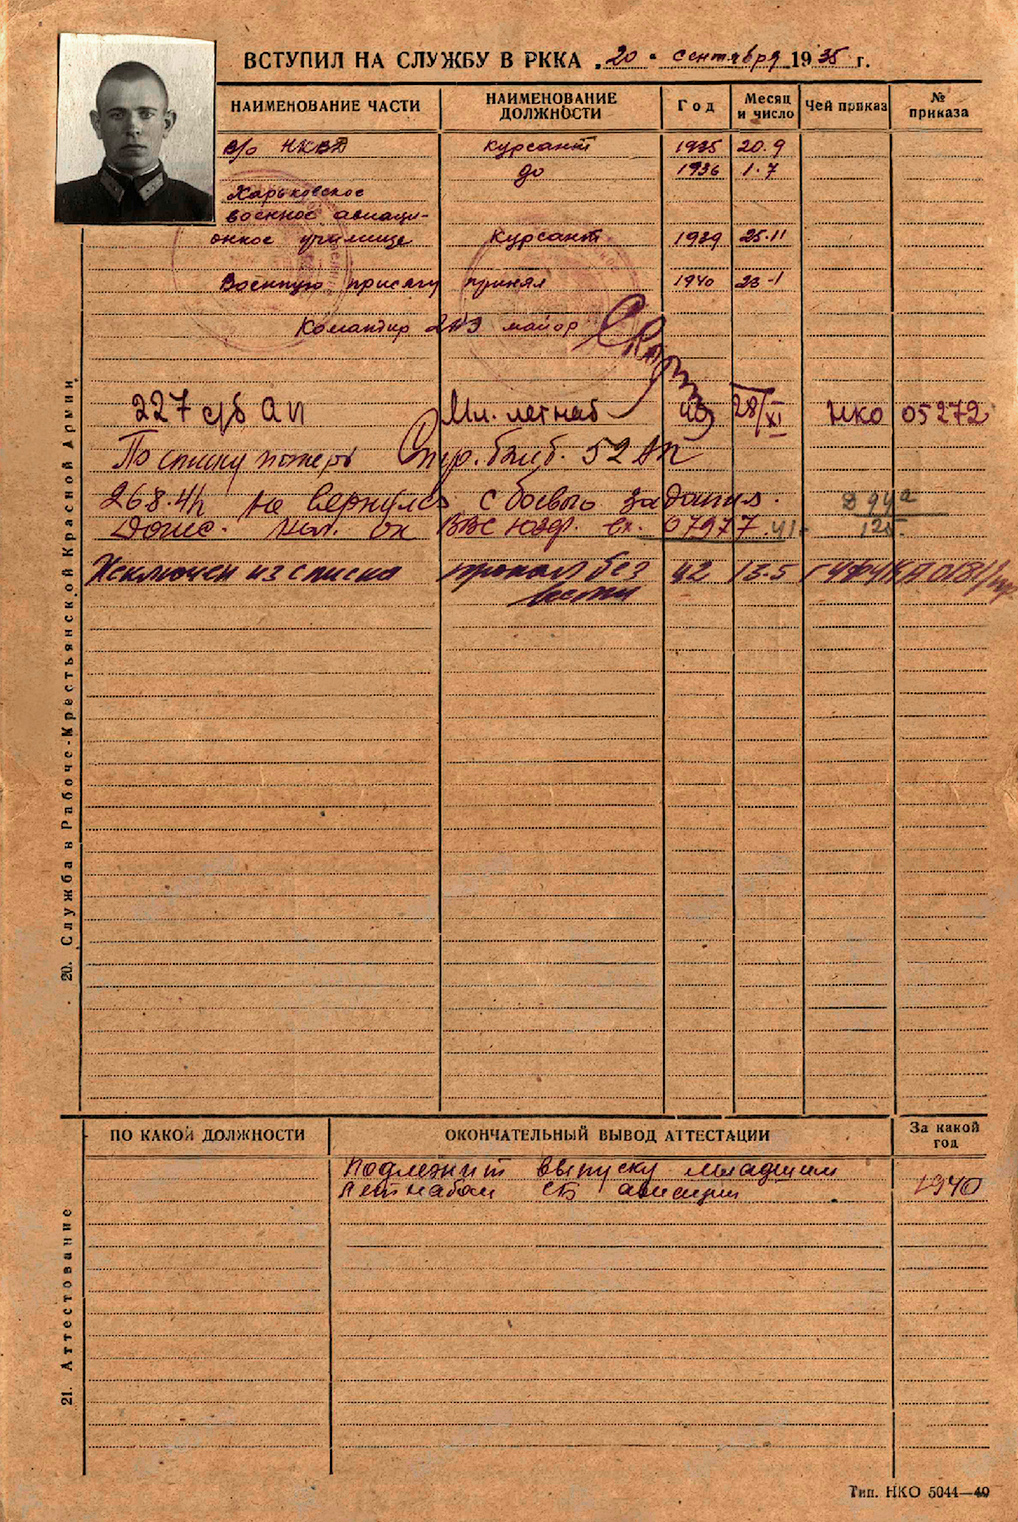 ВСТУПИЛ НА СЛУЖБУ В РККА „20" сентября 1935 г.
НАИМЕНОВАНИЕ ЧАСТИ НАИМЕНОВАНИЕ ДОЛЖНОСТИ Год Месяц и число Чей приказ № приказа
в/о НКВД курсант 1935 20.9
до 1936 1.7
Харьковское
военное авиаци-
онное училище курсант 1939 25.11
Военную присягу принял 1940 23-1
Командир 2АЭ майор
227 с/б ап Мл. летнаб 40 28/XI НКО 05272
По списку потерь Стр. бомб. 52 АП
26.8.41 не вернулся с боевого задания.
Донес. ВВС Юзф. вх. 07977.41.
125.
Исключен из списка пропал без 42 13.5 ГУФУКА
вести
20. Служба в Рабоче-Крестьянской Красной Армии
ПО КАКОЙ ДОЛЖНОСТИ ОКОНЧАТЕЛЬНЫЙ ВЫВОД АТТЕСТАЦИИ За какой год
Подлежит выпуску младшим
летнабом СБ авиации 1940
21. Аттестование
Тип. НКО 5044—40